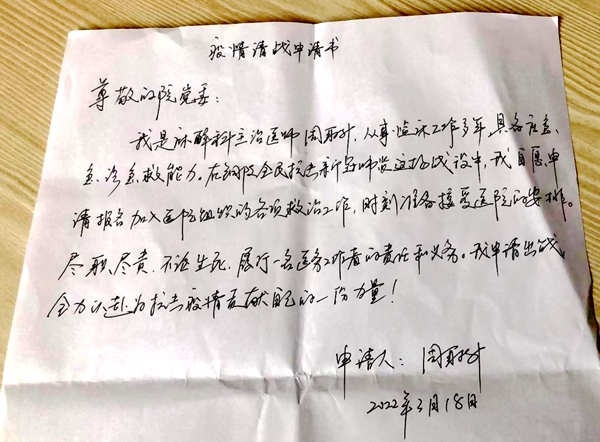 疫情请战申请书
尊敬的院党委：
我是麻醉科主治医师周，从事临床工作多年，具备应急、
急诊急救能力。在全民抗击新冠肺炎这场战役中，我自愿申
请报名加入医院组织的各项救治工作，时刻准备接受医院的安排。
尽职尽责，不论生死，履行一名医务工作者的责任和义务。我申请出战，
全力以赴为抗击疫情贡献自己的一份力量！
申请人：周
2022年3月18日